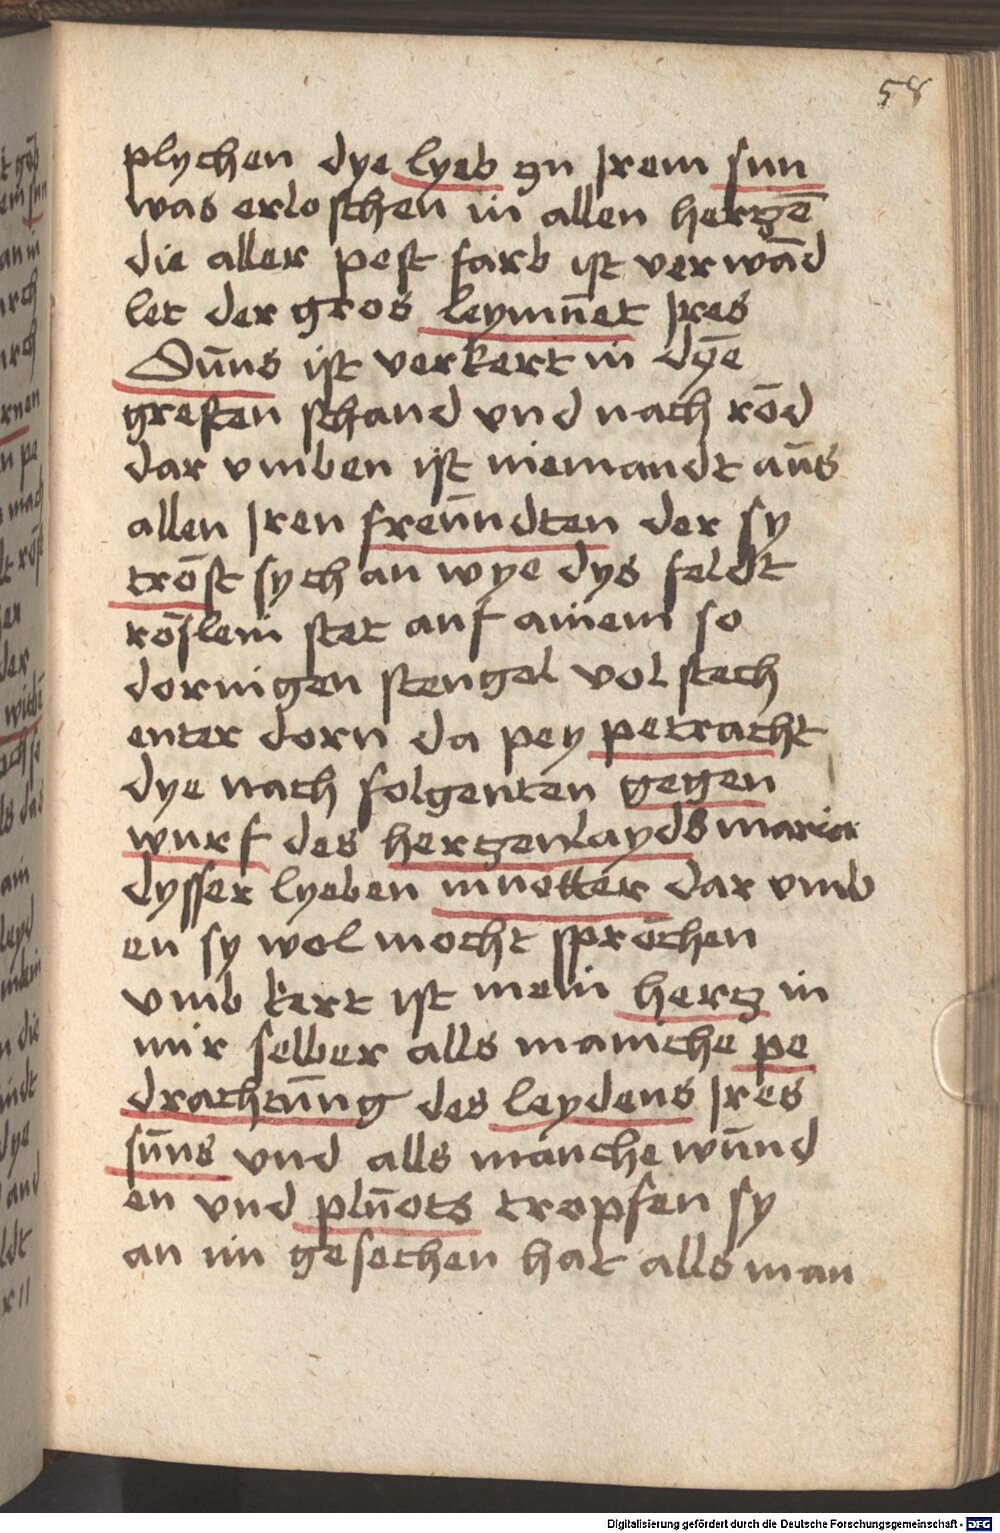 58
plychen dye lyeb zu Jrem sun
was erloschen in allen herzē
die aller pest farb ist verwād
let der gros leymūet Jres
Sūns ist verkert in dÿe
gresten schand vnd nach rōd
dar vmben ist niemandt aūs
allen Jren freūndten der sy
trōst sych an wye dys feldt
rōslein stet auf ainem so
dornigen stengel vol stech
enter dorn da pey petracht
dye nach folgenten gegen
wurf des herzenlayds marier
dysser lyeben muetter dar vmb
en sy wol mocht sprōchen
vmb kert ist mein herz in
mir selber alls maniche pe
drachtūng des leydens Jres
sūns vnd alls manche wūnd
en vnd plūots tropfen sy
an im gesechen hat alls man
Digitalisierung gefördert durch die Deutsche Forschungsgemeinschaft - DFG